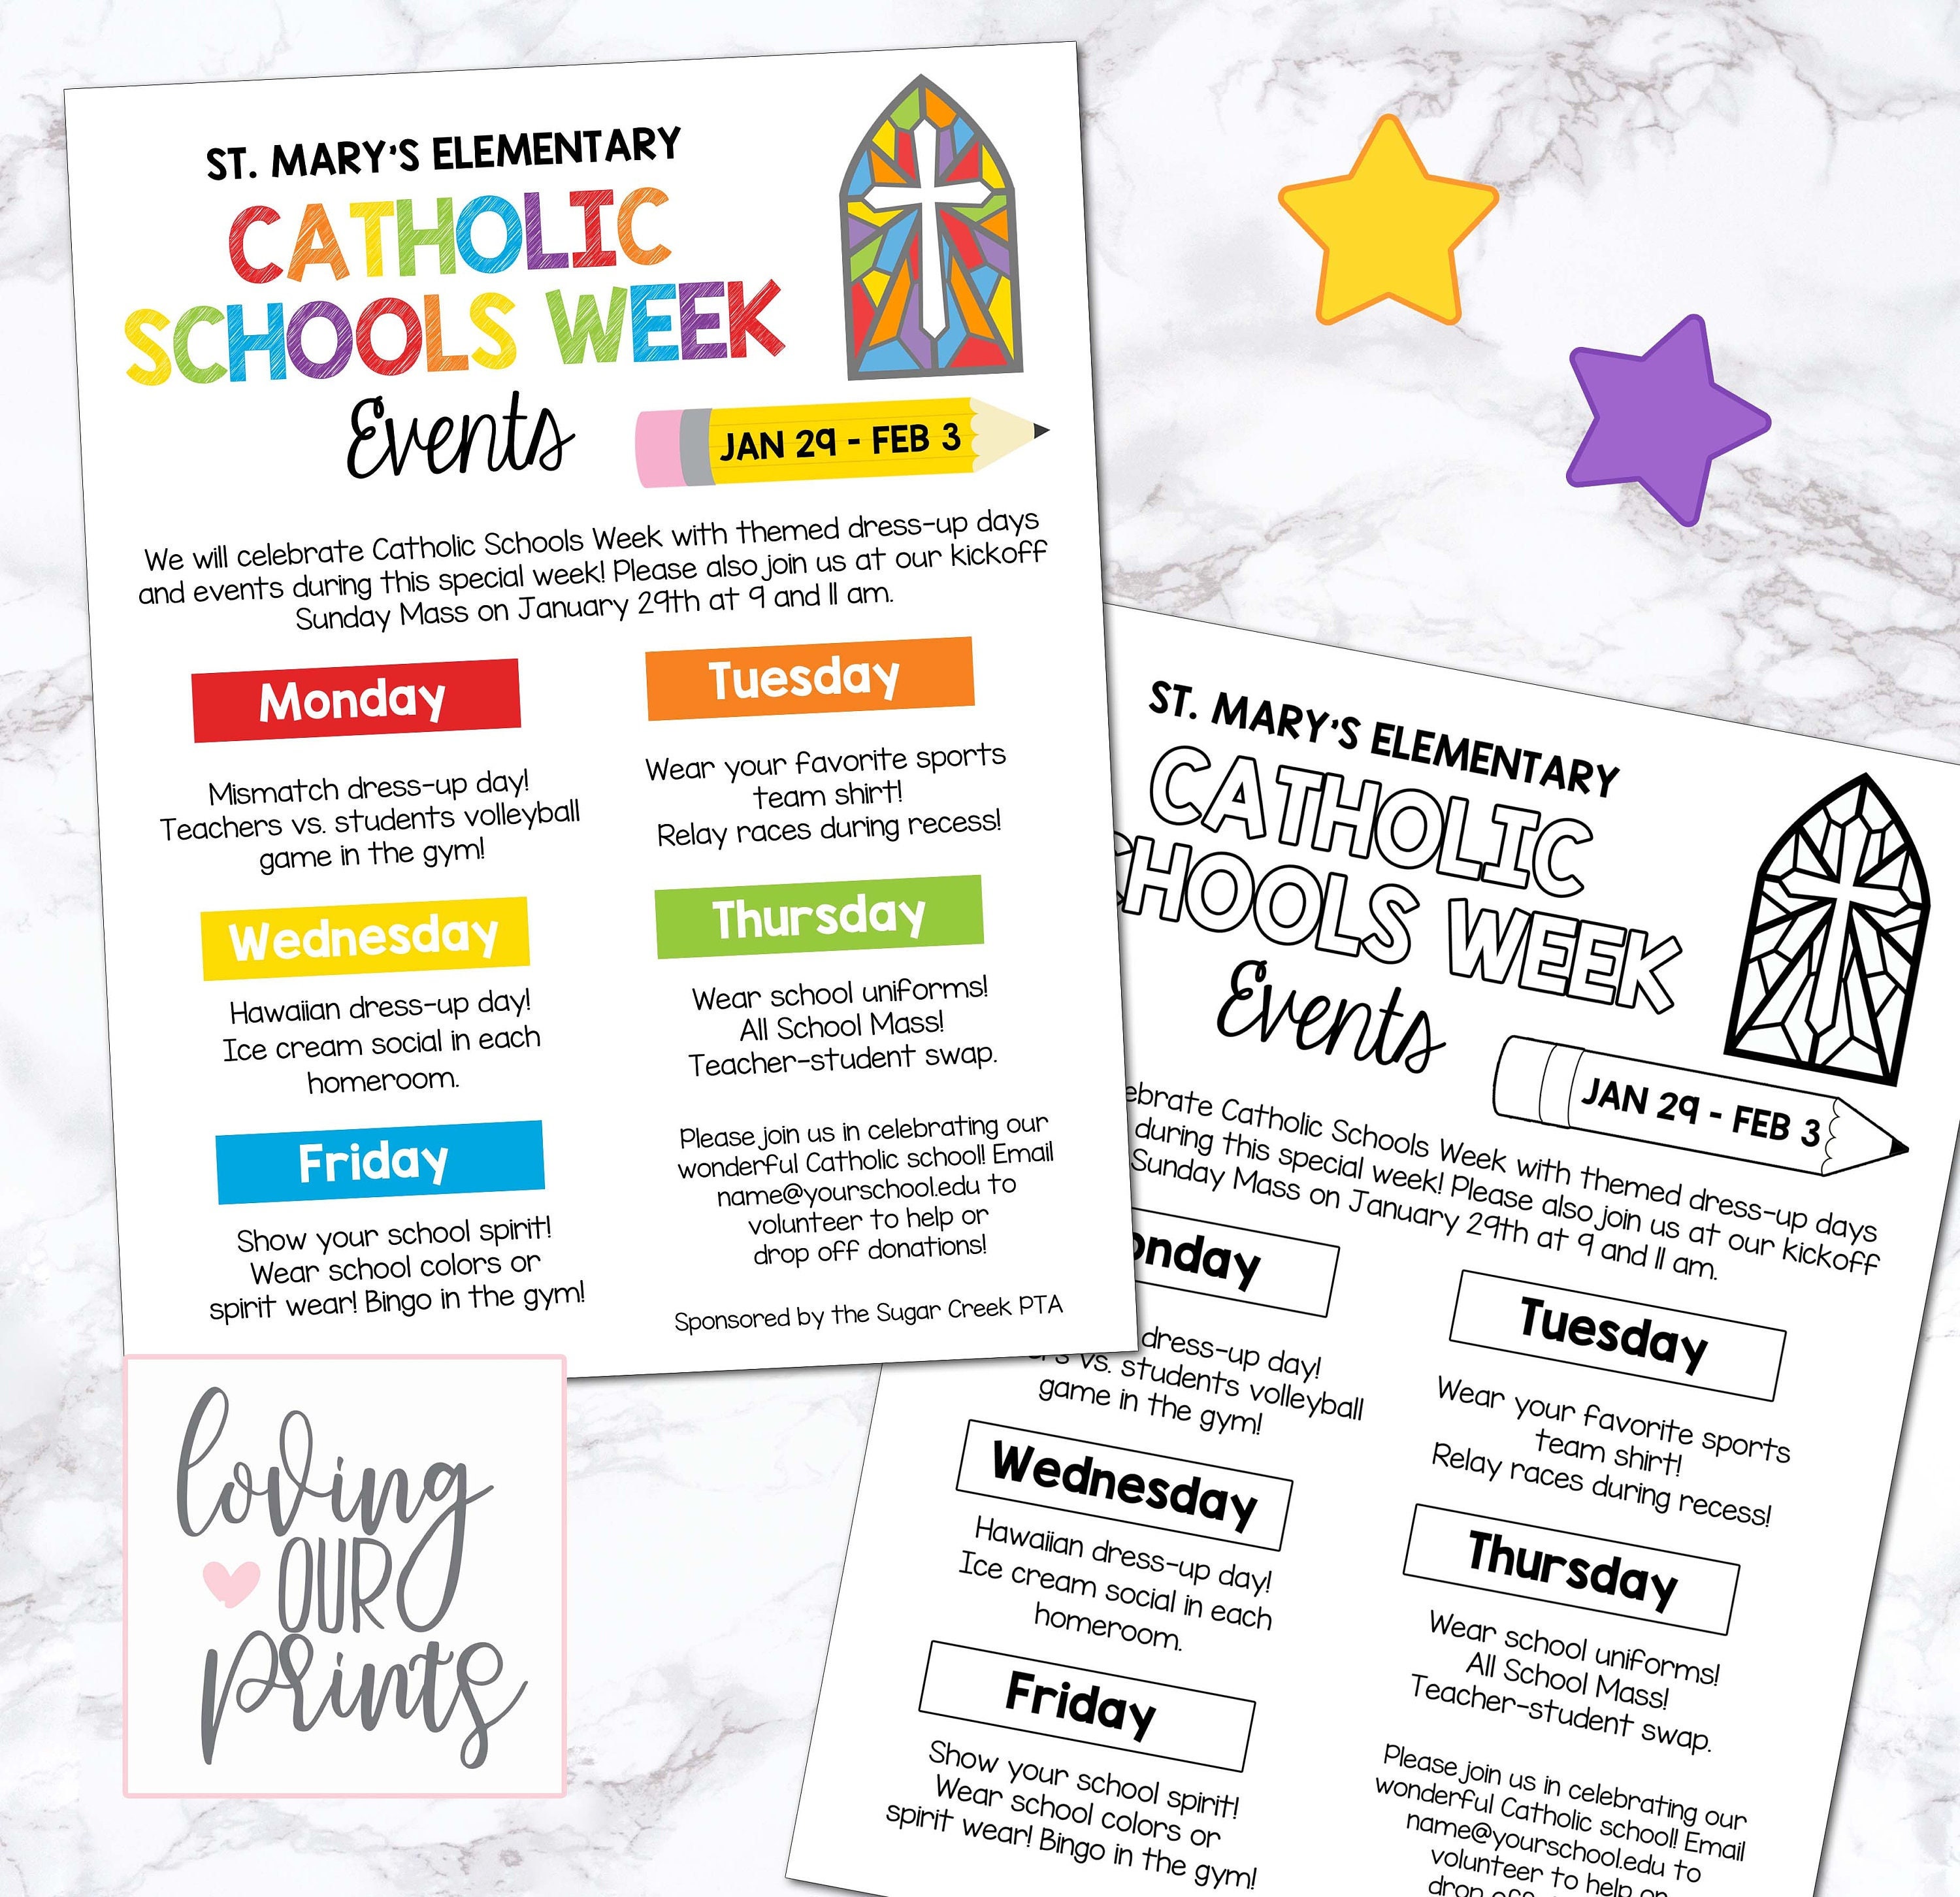 ST. MARY'S ELEMENTARY
CATHOLIC
SCHOOLS WEEK
Events
JAN 29 - FEB 3
We will celebrate Catholic Schools Week with themed dress-up days
and events during this special week! Please also join us at our kickoff
Sunday Mass on January 29th at 9 and 11 am.
Monday
Mismatch dress-up day!
Teachers vs. students volleyball
game in the gym!
Tuesday
Wear your favorite sports
team shirt!
Relay races during recess!
Wednesday
Hawaiian dress-up day!
Ice cream social in each
homeroom.
Thursday
Wear school uniforms!
All School Mass!
Teacher-student swap.
Friday
Show your school spirit!
Wear school colors or
spirit wear! Bingo in the gym!
Please join us in celebrating our
wonderful Catholic school! Email
name@yourschool.edu to
volunteer to help or
drop off donations!
Sponsored by the Sugar Creek PTA
loving
OUR
prints
ST. MARY'S ELEMENTARY
CATHOLIC
HOOLS WEEK
Events
JAN 29 - FEB 3
ebrate Catholic Schools Week with themed dress-up days
during this special week! Please also join us at our kickoff
Sunday Mass on January 29th at 9 and 11 am.
onday
dress-up day!
vs. students volleyball
game in the gym!
Tuesday
Wear your favorite sports
team shirt!
Relay races during recess!
Wednesday
Hawaiian dress-up day!
Ice cream social in each
homeroom.
Thursday
Wear school uniforms!
All School Mass!
Teacher-student swap.
Friday
Show your school spirit!
Wear school colors or
spirit wear! Bingo in the gym!
Please join us in celebrating our
wonderful Catholic school! Email
name@yourschool.edu to
volunteer to help or